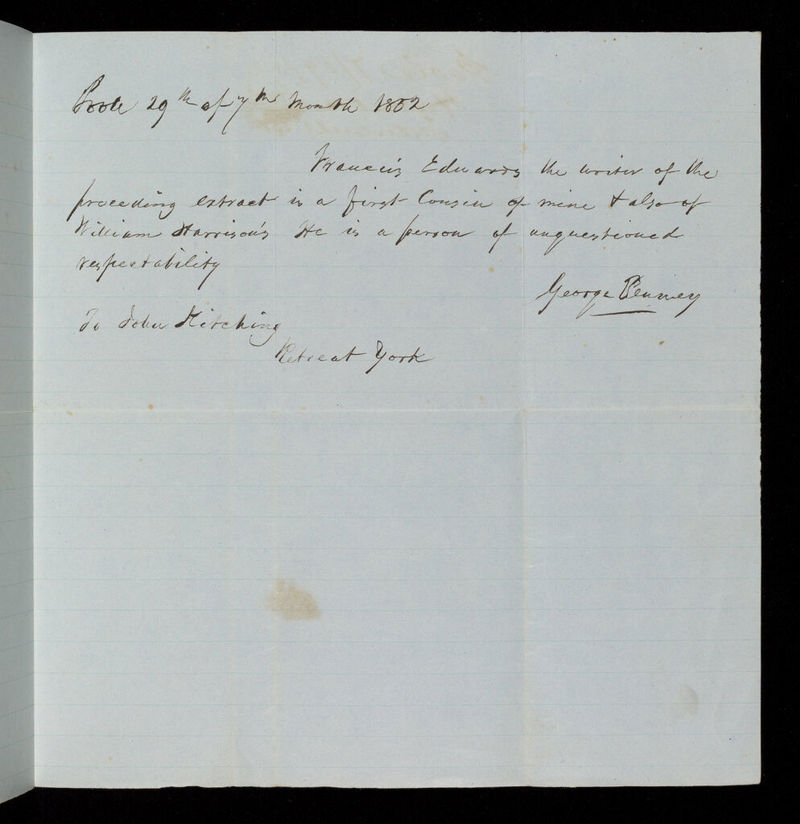 Poole 29th of 7th Month 1852
Francis Edwards the writer of the
preceding extract is a first Cousin of mine & also of
William Harrison's He is a person of unquestioned
respectability
George Penney
To John Kitching
Retreat York